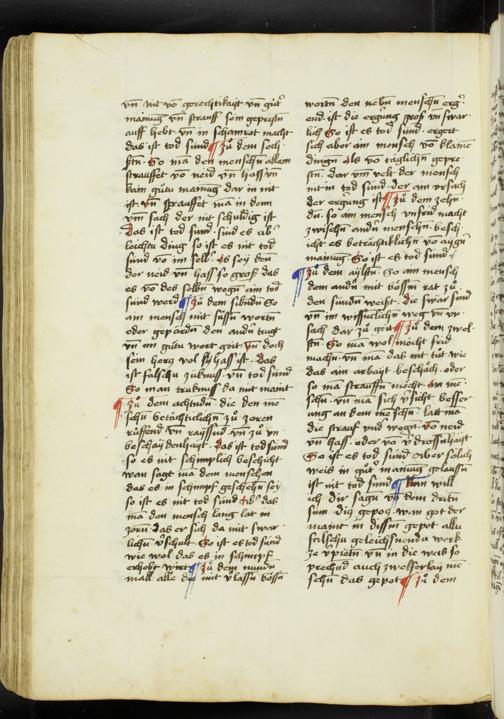 vn̄ nit vō gerechtikayt vn̄ gůt
mainug vn̄ strauff sein geprestn̄
auff hebt vn̄ in schamrot macht
das ist tod sund ¶ Zů dem sech
stn̄ So ma den menschn̄ allain
strauffet vō neid vn̄ hass vn̄
kain gůtu mainug dar in nit
ist vn̄ strauffet ma in dem
vmm sach der nit schuldig ist
das ist tod sund sind es ab
leichtu ding so ist es nit tod
sund vō im selb es sey den
der neid vn̄ hass so groß das
es vō des selbn̄ wegn̄ ain tod
sund werd ¶ Zů dem sibndn̄ So
ain mensch mit sussn̄ wortn̄
oder gepärdn̄ den andn̄ trugt
vn̄ im gůtu wort geit vn̄ doch
sein herz vol hass ist das
ist falschu vn̄ tod sund
So man da nit maint
¶ Zů dem achtudn̄ die den me
schn̄ betächtiklichn̄ zů zorn
vn̄ vn̄ zů vn
beschaydenhayt das ist tod sund
so es nit schimpflich beschicht
wan sagt ma dem menschen
das es in schimpf geschehn̄ sey
so ist es nit tod sund das
ma den mensch lang lat in
zorn das er sich da mit swar
lichn̄ So ist es tod sund
wie wol das es in schimpf
erhebt wirt ¶ Zů dem nundn̄
mall alle die mit bösn̄
wortn̄ den nebn̄ menschn̄ erg
end ist die ergrung groß vn̄ swar
lich So ist es tod sund ergert
sich aber ain mensch vō klaine
dingn̄ als vō täglichn̄ gepre
stn̄ dar vm velt der mensch
nit in tod sund der ain vrsach
der ergrung ist ¶ Zů dem zehn
du so ain mensch vnfrid macht
zwischn̄ andn̄ menschn̄ besch
icht es betrachtiklichn̄ vō aygn̄
mainug So ist es tod sund
¶ Zů dem aylftn̄ So ain mensch
dem andn̄ mit bössm̄ rat zů
den sundn̄ weißt die swar sind
vn̄ im wissuclichn̄ weg vn̄ vr
sach dar zů geit ¶ Zů dem zwel
ftn̄ So ma wol möcht frid
machn̄ vn̄ ma das nit tůt wie
das ain arbayt beschäch oder
so ma strauffn̄ möcht ain me
schn̄ vn̄ ma sich besser
ung an dem meschn̄ lat ma
die strauf vnd wegn̄ vō neid
vn̄ hass oder vō
So ist es tod sund Aber sölich
weis in gůt mainug gelaussn̄
ist nit tod sund ¶ Nun will
ich dir sagn̄ vō dem drittn̄
sum dig gepot wan got der
maint in dissm̄ gepot allu
falschu geleichsnendu werk
ze vn̄ in die weis so
prechnd auch zwelferlay me
schn̄ das gepot ¶ Zů dem